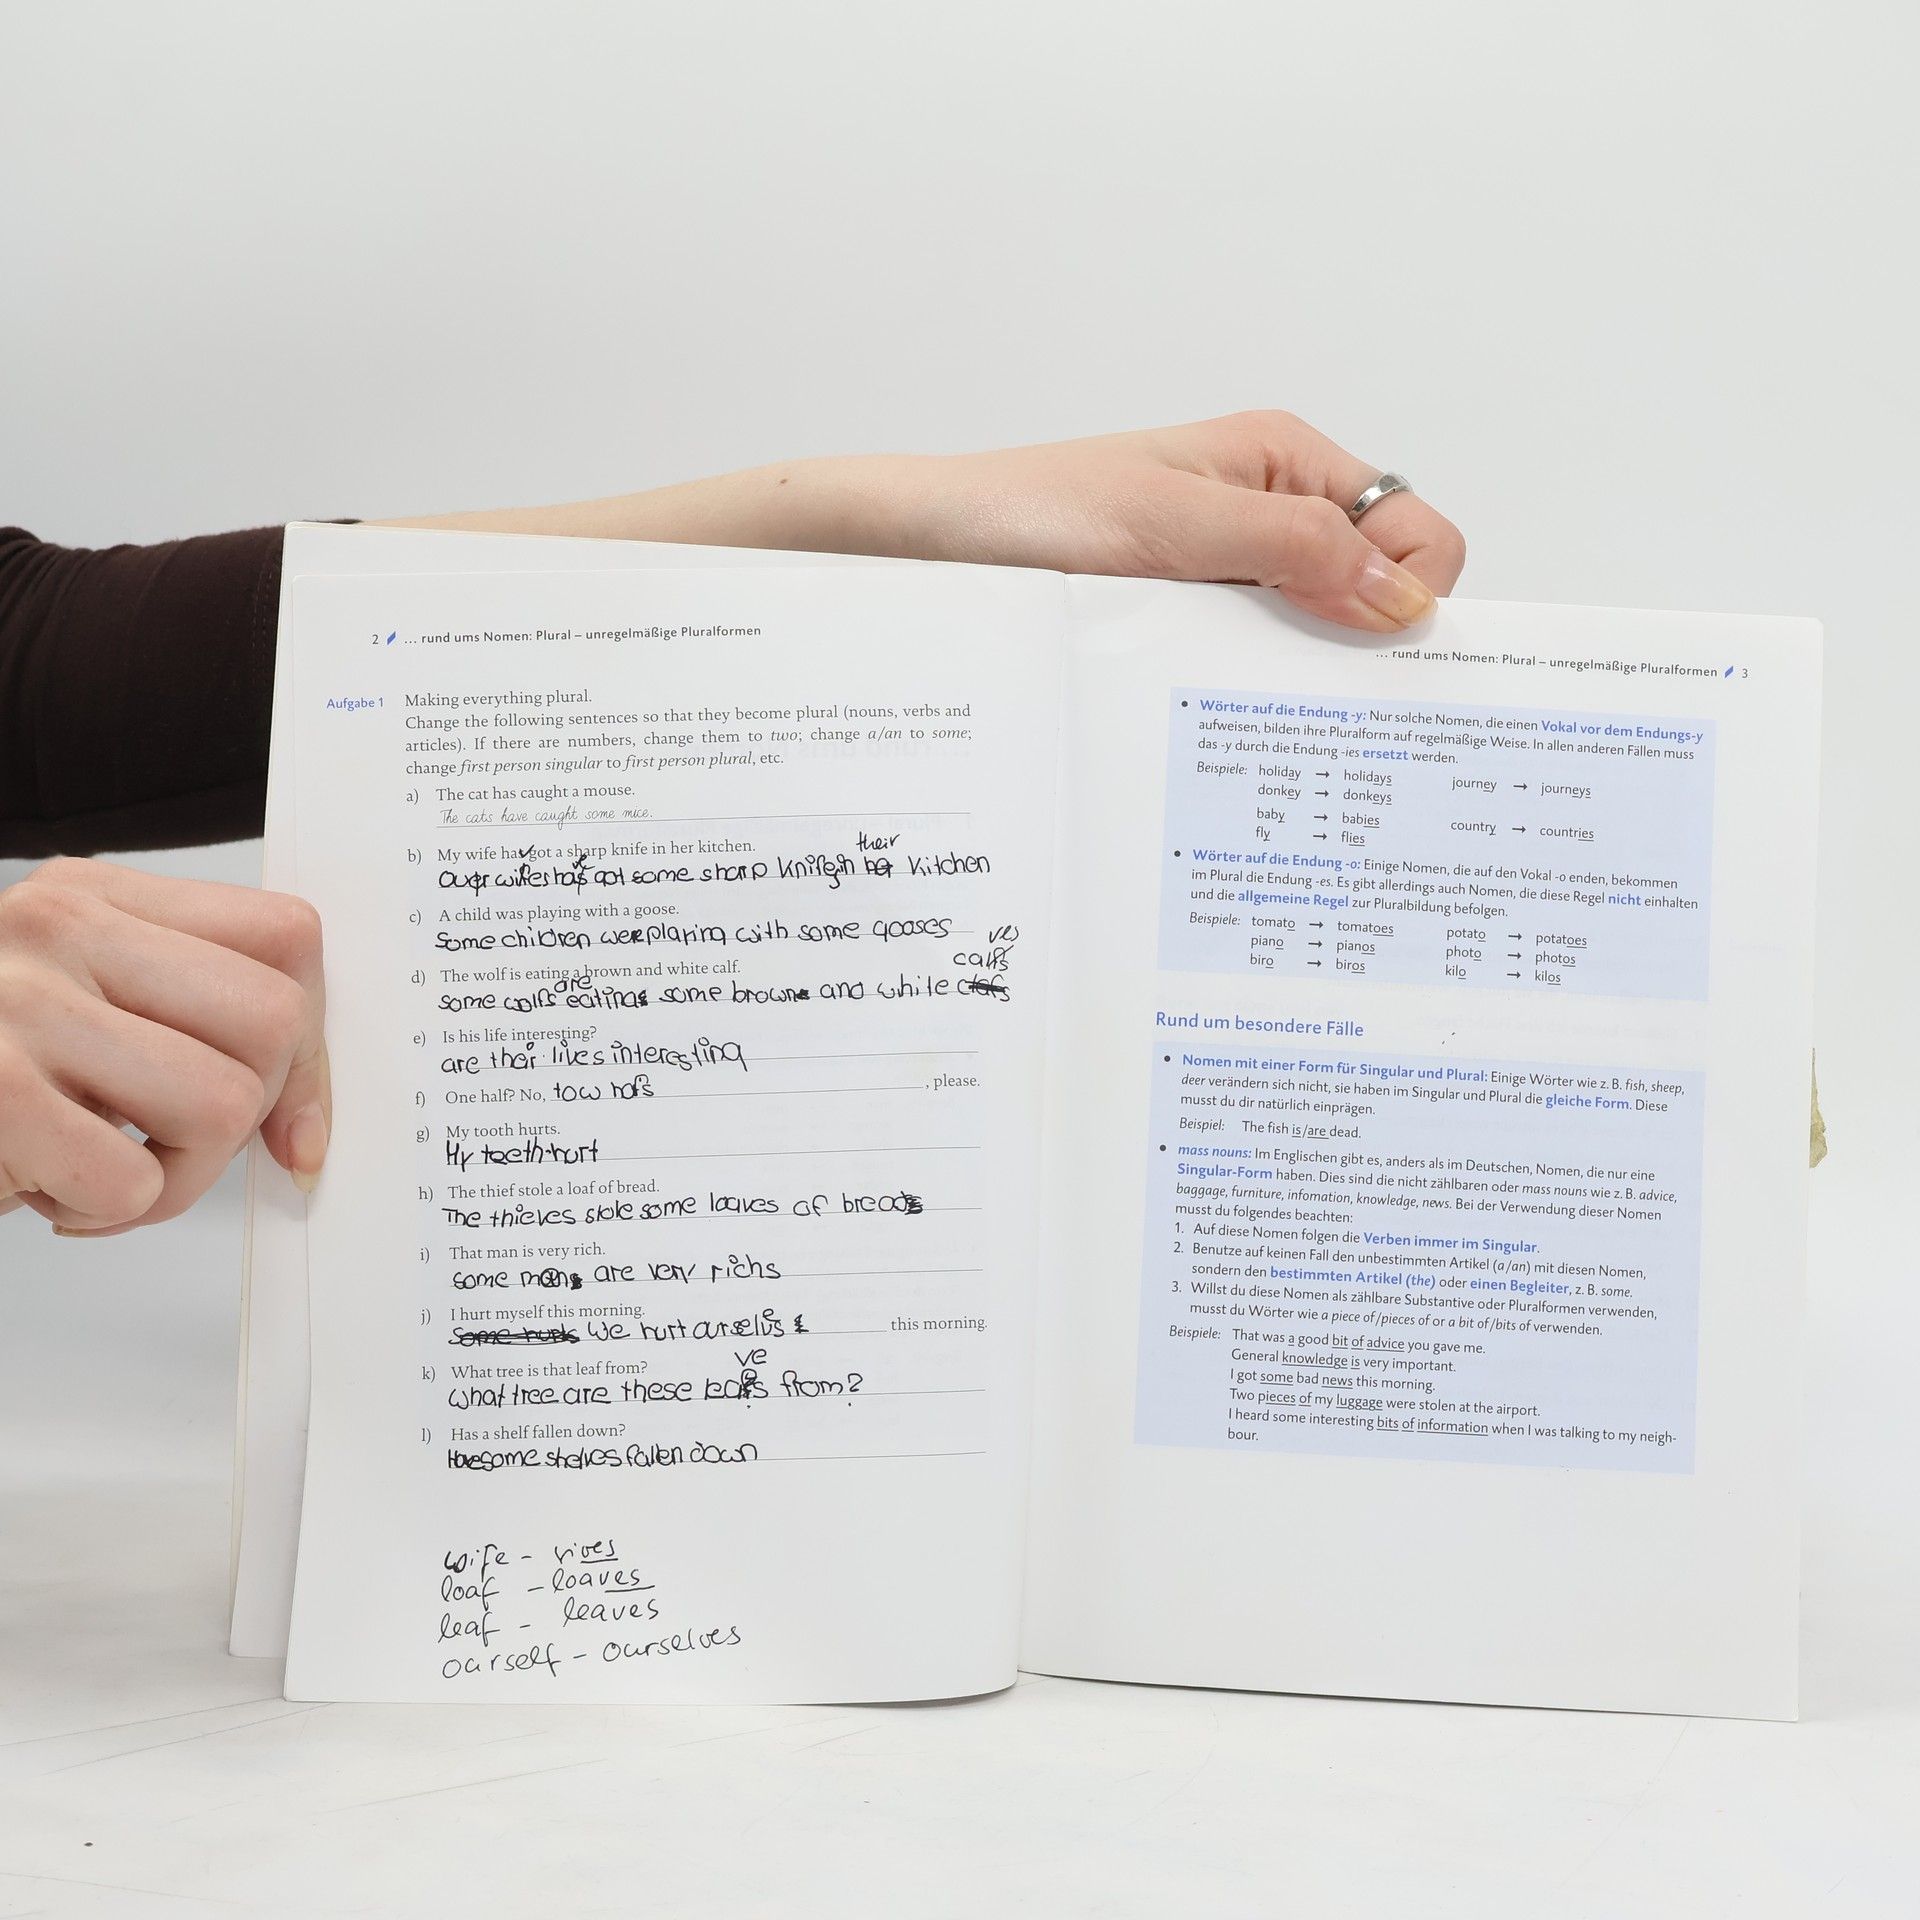 2 ... rund ums Nomen: Plural – unregelmäßige Pluralformen
Aufgabe 1 Making everything plural.
Change the following sentences so that they become plural (nouns, verbs and
articles). If there are numbers, change them to two; change a/an to some;
change first person singular to first person plural, etc.
a) The cat has caught a mouse.
The cats have caught some mice.
b) My wife has got a sharp knife in her kitchen.
their
wifes got some sharp in her kitchen
c) A child was playing with a goose.
Some children were playing with some gooses
ves
d) The wolf is eating a brown and white calf.
calfs
are
some wolfs eating some brown and white
e) Is his life interesting?
are their lives interesting
f) One half? No, tow hafs , please.
g) My tooth hurts.
My teeth hurt
h) The thief stole a loaf of bread.
The thieves stole some loaves of bread
i) That man is very rich.
some are very richs
j) I hurt myself this morning.
We hurt this morning.
ve
k) What tree is that leaf from?
what tree are these from?
l) Has a shelf fallen down?
Have some shelves fallen down
wife – vives
loaf – loaves
leaf – leaves
ourself – ourselves
... rund ums Nomen: Plural – unregelmäßige Pluralformen 3
• Wörter auf die Endung -y: Nur solche Nomen, die einen Vokal vor dem Endungs-y
aufweisen, bilden ihre Pluralform auf regelmäßige Weise. In allen anderen Fällen muss
das -y durch die Endung -ies ersetzt werden.
Beispiele: holiday → holidays journey → journeys
donkey → donkeys
baby → babies country → countries
fly → flies
• Wörter auf die Endung -o: Einige Nomen, die auf den Vokal -o enden, bekommen
im Plural die Endung -es. Es gibt allerdings auch Nomen, die diese Regel nicht einhalten
und die allgemeine Regel zur Pluralbildung befolgen.
Beispiele: tomato → tomatoes potato → potatoes
piano → pianos photo → photos
biro → biros kilo → kilos
Rund um besondere Fälle
• Nomen mit einer Form für Singular und Plural: Einige Wörter wie z. B. fish, sheep,
deer verändern sich nicht, sie haben im Singular und Plural die gleiche Form. Diese
musst du dir natürlich einprägen.
Beispiel: The fish is/are dead.
• mass nouns: Im Englischen gibt es, anders als im Deutschen, Nomen, die nur eine
Singular-Form haben. Dies sind die nicht zählbaren oder mass nouns wie z. B. advice,
baggage, furniture, infomation, knowledge, news. Bei der Verwendung dieser Nomen
musst du folgendes beachten:
1. Auf diese Nomen folgen die Verben immer im Singular.
2. Benutze auf keinen Fall den unbestimmten Artikel (a/an) mit diesen Nomen,
sondern den bestimmten Artikel (the) oder einen Begleiter, z. B. some.
3. Willst du diese Nomen als zählbare Substantive oder Pluralformen verwenden,
musst du Wörter wie a piece of/pieces of or a bit of/bits of verwenden.
Beispiele: That was a good bit of advice you gave me.
General knowledge is very important.
I got some bad news this morning.
Two pieces of my luggage were stolen at the airport.
I heard some interesting bits of information when I was talking to my neigh-
bour.